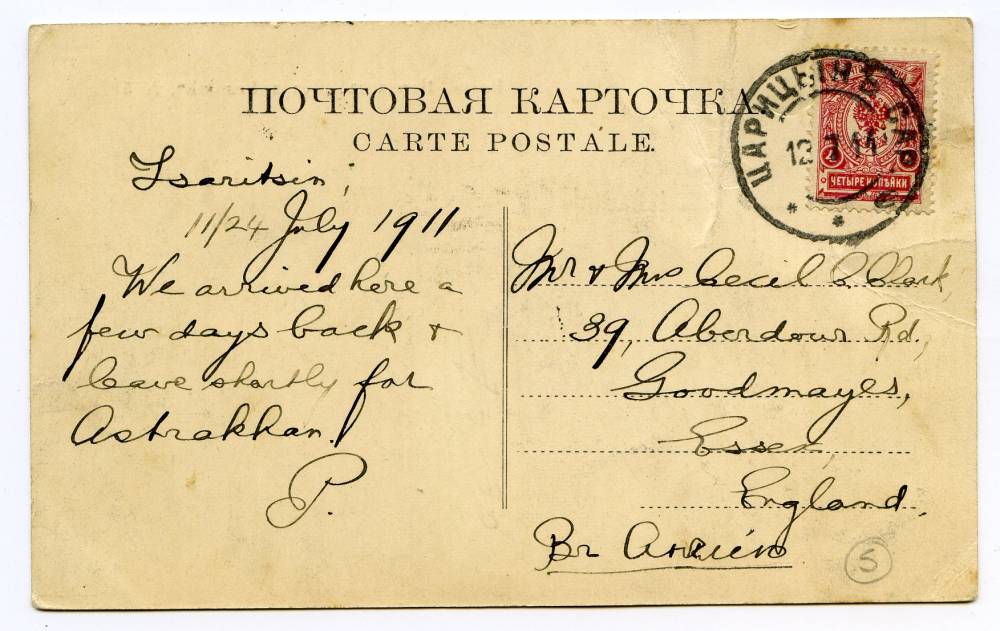 ПОЧТОВАЯ КАРТОЧКА
CARTE POSTALE.
ЦАРИЦЫНЪ САР
12 7 11
ЧЕТЫРЕ КОПѢЙКИ
Tsaritsin,
11/24 July 1911
We arrived here a
few days back &
leave shortly for
Astrakhan.
P.
Mr & Mrs Cecil C. Clark,
39, Aberdour Rd,
Goodmayes,
Essex,
England.
Въ Англію
5